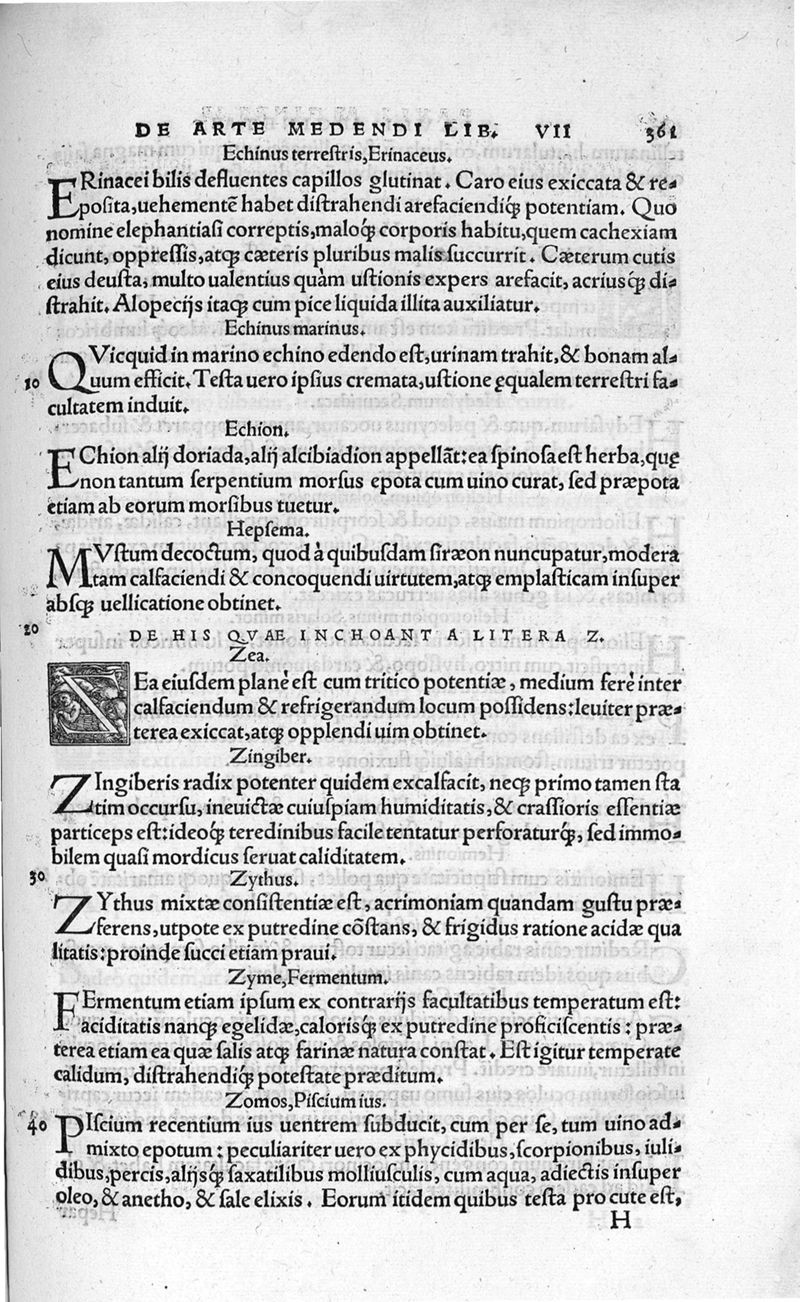 DE ARTE MEDENDI LIB. VII 361
Echinus terreſtris, Erinaceus.
ERinacei bilis defluentes capillos glutinat. Caro eius exiccata & re⸗
poſita, uehementẽ habet diſtrahendi arefaciendiq́; potentiam. Quo
nomine elephantiaſi correptis, maloq́; corporis habitu, quem cachexiam
dicunt, oppreſſis, atq; cæteris pluribus malis ſuccurrit. Cæterum cutis
eius deuſta, multo ualentius quàm uſtionis expers arefacit, acriusq́; di⸗
ſtrahit. Alopecijs itaq; cum pice liquida illita auxiliatur.
Echinus marinus.
QVicquid in marino echino edendo eſt, urinam trahit, & bonam al⸗
10 uum efficit. Teſta uero ipſius cremata, uſtione ęqualem terreſtri fa⸗
cultatem induit.
Echion.
EChion alij doriada, alij alcibiadion appellãt: ea ſpinoſa eſt herba, quę
non tantum ſerpentium morſus epota cum uino curat, ſed præpota
etiam ab eorum morſibus tuetur.
Hepſema.
MVſtum decoctum, quod à quibuſdam ſiræon nuncupatur, modera
tam calfaciendi & concoquendi uirtutem, atq; emplaſticam inſuper
abſq; uellicatione obtinet.
20 DE HIS QVAE INCHOANT A LITERA Z.
Zea.
ZEa eiuſdem planè eſt cum tritico potentiæ, medium ferè inter
calfaciendum & refrigerandum locum poſſidens: leuiter præ⸗
terea exiccat, atq; opplendi uim obtinet.
Zingiber.
ZIngiberis radix potenter quidem excalfacit, neq; primo tamen ſta
tim occurſu, ineuictæ cuiuſpiam humiditatis, & craſſioris eſſentiæ
particeps eſt: ideoq́; teredinibus facile tentatur perforaturq́;, ſed immo⸗
bilem quaſi mordicus ſeruat caliditatem.
30 Zythus.
ZYthus mixtæ conſiſtentiæ eſt, acrimoniam quandam guſtu præ⸗
ferens, utpote ex putredine cõſtans, & frigidus ratione acidæ qua
litatis: proinde ſucci etiam praui.
Zyme, Fermentum.
FErmentum etiam ipſum ex contrarijs facultatibus temperatum eſt:
aciditatis nanq; egelidæ, calorisq́; ex putredine proficiſcentis: præ⸗
terea etiam ea quæ ſalis atq; farinæ natura conſtat. Eſt igitur temperate
calidum, diſtrahendiq́; poteſtate præditum.
Zomos, Piſcium ius.
40 PIſcium recentium ius uentrem ſubducit, cum per ſe, tum uino ad⸗
mixto epotum: peculiariter uero ex phycidibus, ſcorpionibus, iuli⸗
dibus, percis, alijsq́; ſaxatilibus molliuſculis, cum aqua, adiectis inſuper
oleo, & anetho, & ſale elixis. Eorum itidem quibus teſta pro cute eſt,
H